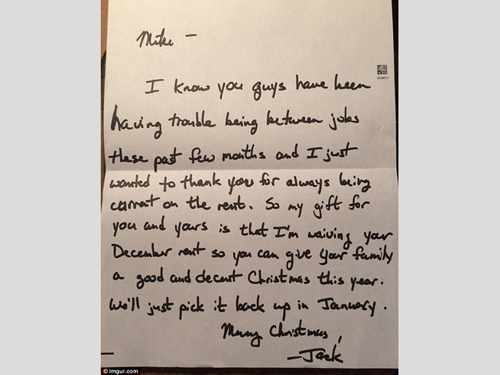 Mike -
I know you guys have been
having trouble being between jobs
these past few months and I just
wanted to thank you for always being
current on the rent. So my gift for
you and yours is that I'm waiving your
December rent so you can give your family
a good and decent Christmas this year.
We'll just pick it back up in January.
Merry Christmas!
-Jack
© Imgur.com